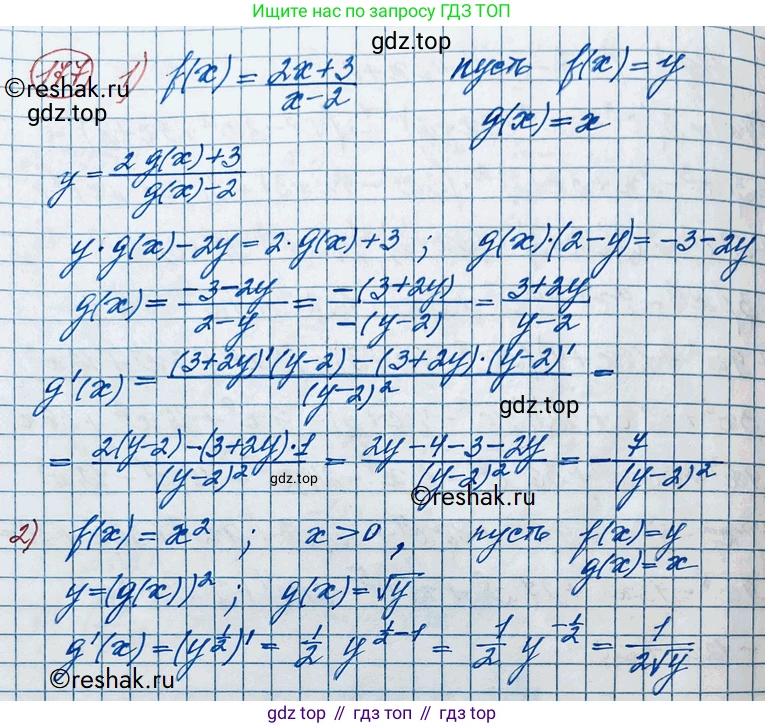 Ищите нас по запросу ГДЗ ТОП
gdz.top
177 1) f(x) = (2x+3)/(x-2) пусть f(x) = y
©reshak.ru
gdz.top
g(x) = x
y = (2 g(x)+3)/(g(x)-2)
y · g(x) - 2y = 2 · g(x) + 3 ; g(x)·(2-y) = -3-2y
g(x) = (-3-2y)/(2-y) = (-(3+2y))/(-(y-2)) = (3+2y)/(y-2)
g'(x) = ((3+2y)'(y-2) - (3+2y)·(y-2)')/(y-2)² =
gdz.top
= (2(y-2) - (3+2y)·1)/(y-2)² = (2y-4-3-2y)/(y-2)² = - 7/(y-2)²
gdz.top
©reshak.ru
2) f(x) = x² ; x>0 , пусть f(x) = y
g(x) = x
y = (g(x))² ; g(x) = √y
g'(x) = (y^½)' = ½ y^(½-1) = ½ y^(-½) = 1/(2√y)
©reshak.ru
gdz top // гдз топ // gdz top